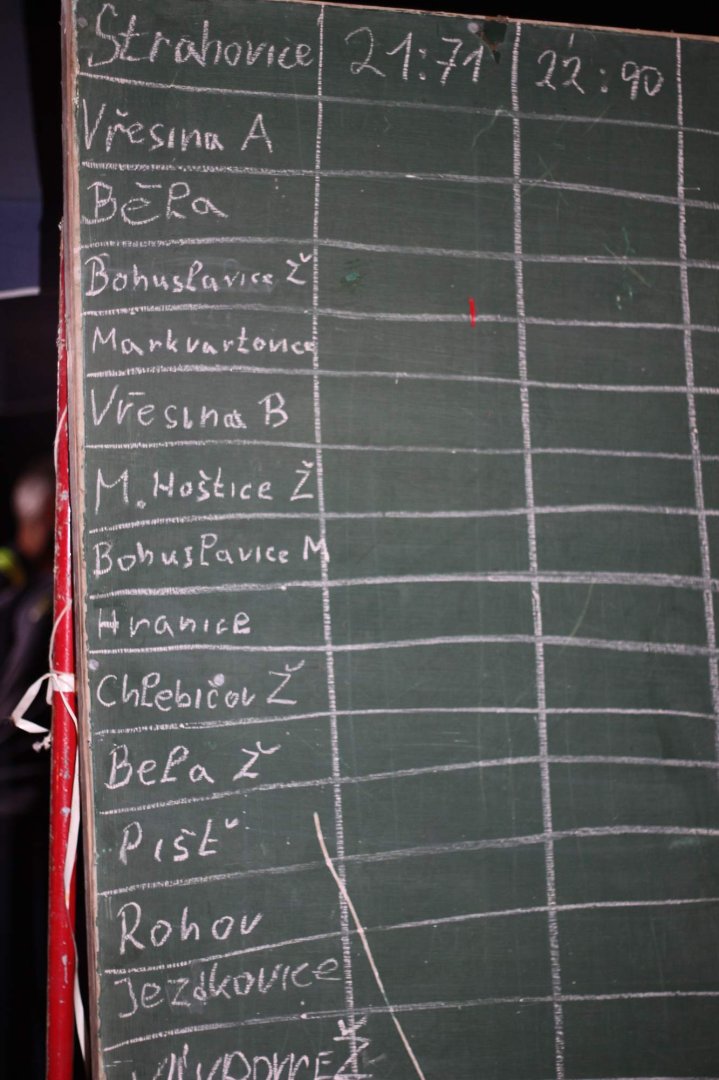 Strahovice 21:71 22:90
Vřesina A
Běla
Bohuslavice Ž
Markvartovice
Vřesina B
M. Hoštice Ž
Bohuslavice M
Hranice
Chlebičov Ž
Bela Ž
Píšť
Rohov
Jezdkovice
Ž